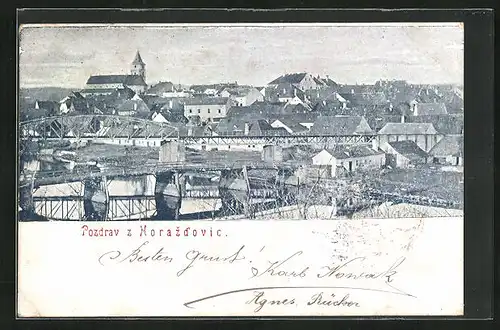 Pozdrav z Horažďovic.
Besten Gruss!
Karl Nowak
Agnes Rücker